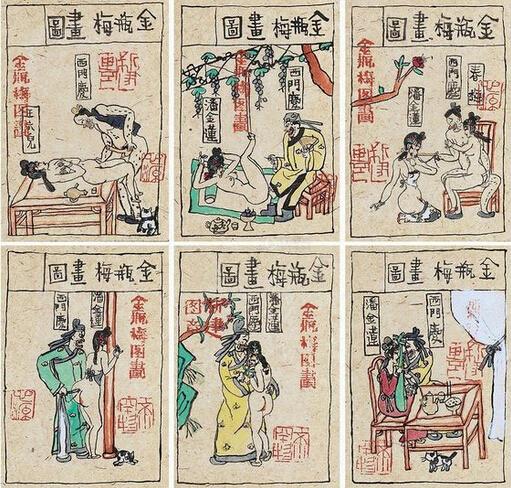 金瓶梅畫圖
西門慶
金瓶梅图畫
金瓶梅畫圖
西門慶
金瓶梅图畫
潘金蓮
金瓶梅畫圖
春梅
西門慶
潘金蓮
金瓶梅图畫
金瓶梅畫圖
金瓶梅图畫
潘金蓮
西門慶
金瓶梅畫圖
金瓶梅图畫
潘金蓮
西門慶
金瓶梅畫圖
西門慶
潘金蓮